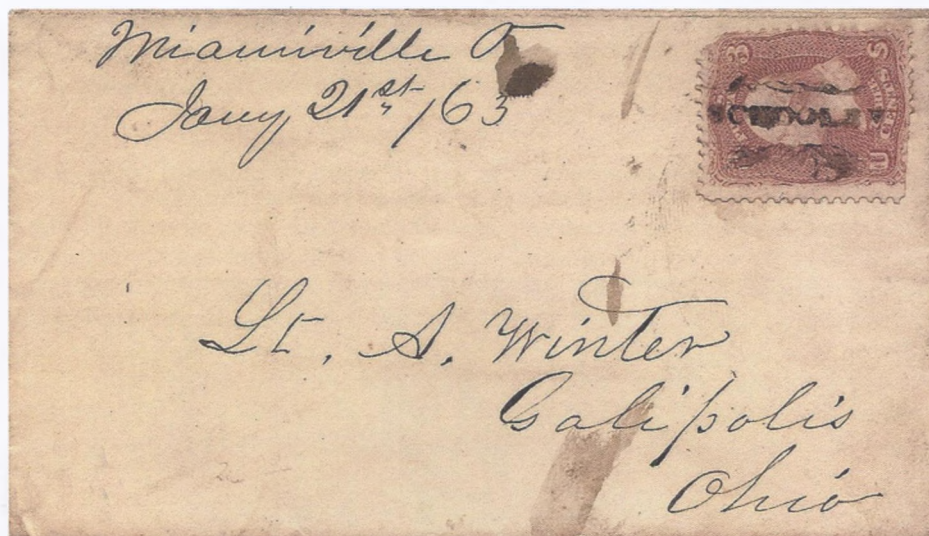 Miamiville O
Jany 21st /63
3
Lt. A. Winter
Galipolis
Ohio